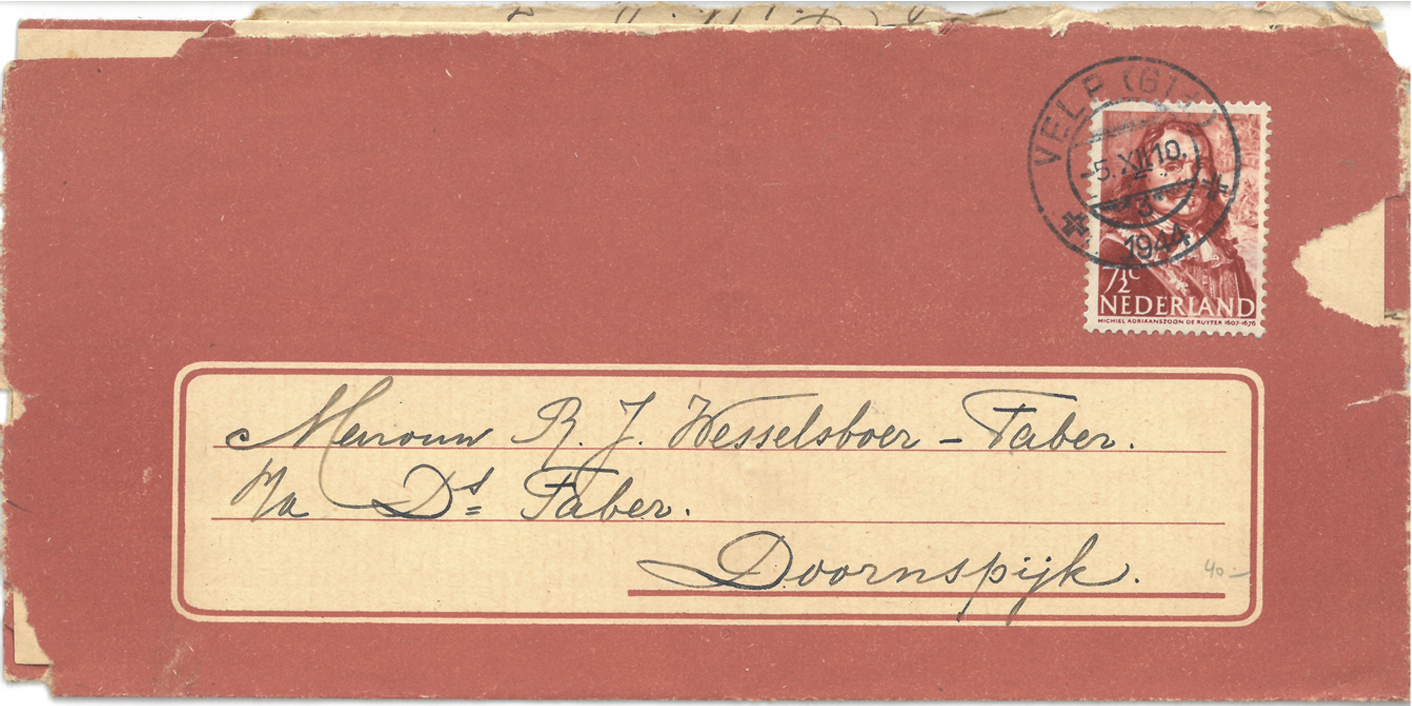 VELP (Gld.)
-5.XII.10.
3
1944
7½c
NEDERLAND
MICHIEL ADRIAANSZOON DE RUYTER 1607-1676
Mevrouw R. J. Wesselsboer - Faber.
p/a Ds Faber.
Doornspijk.
40-